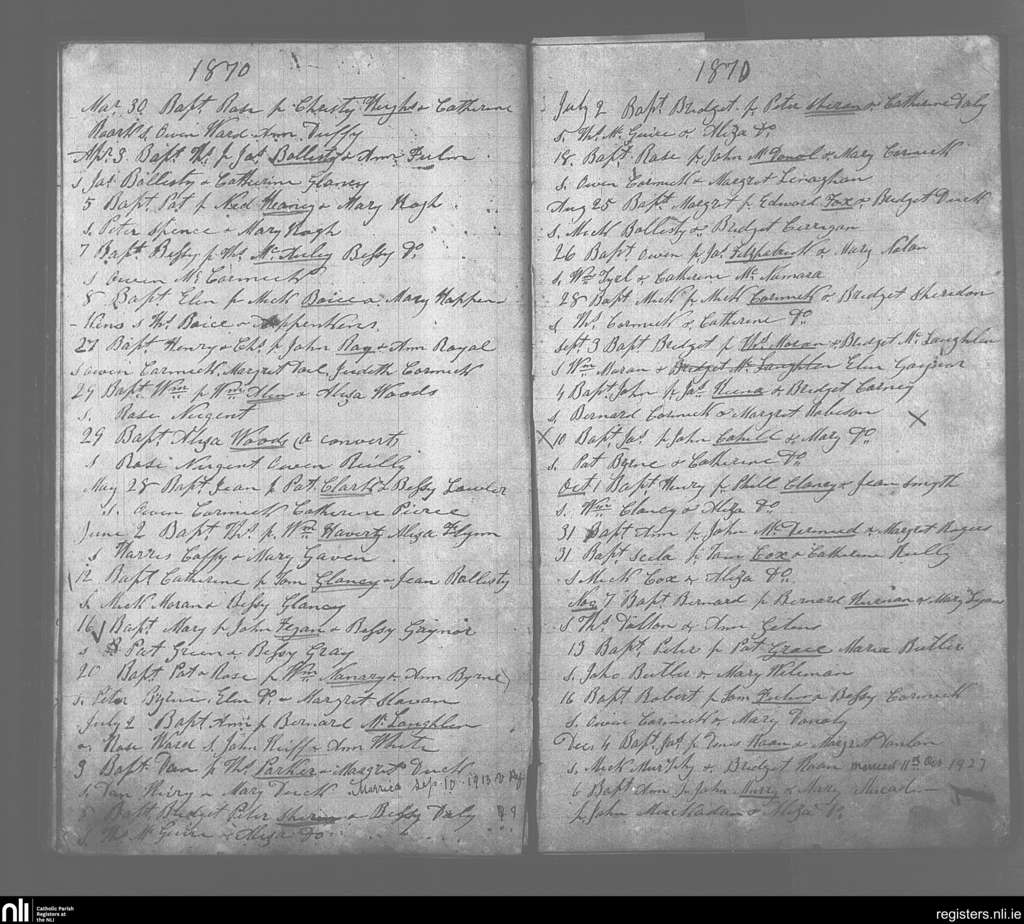 1870
Mar 30 Bapt Rose p Christy Hughs & Catherine
Roark s. Owen Ward Ann Duffy
Apr 3 Bapt Ths p Jas Bollisty & Ann
s Jas Bollisty & Catherine Glancy
5 Bapt Pat p Ned Heaney & Mary Hogh
s. Peter Spence & Mary Hogh
7 Bapt Bessy p Ths McAuley Bessy Do
s Owen McCormick
8 Bapt Elen p Mick Boice & Mary Happen
-kins s Ths Boice &
27 Bapt Henry & Chs p John Ray & Ann Royal
s Owen Cormick, Margret Judith Cormick
29 Bapt Wm p Wm & Aliza Woods
s. Rose Nugent
29 Bapt Aliza Woods (a convert)
s Rose Nugent Owen Reilly
May 28 Bapt Jean p Pat Clark & Bessy Lawler
s. Owen Cormick Catherine Pierce
June 2 Bapt Ths p Wm Haverty Aliza Flynn
s Harris Caffy & Mary Gaven
12 Bapt Catherine p Tom Glancy & Jean Bollisty
s. Mick Moran & Bessy Glancy
16 Bapt Mary p John Fegan & Bessy Gaynor
s Pat Green & Bessy Gray
20 Bapt Pat & Rose p Wm Nanary & Ann Byrne
s. Peter Byrne, Elen Do & Margret Slavan
July 2 Bapt Ann p Bernard McLoughlin
& Rose Ward s. John Keiff & Ann White
3 Bapt Dan p Ths Parker & Margret Duck
s. Dan & Mary Duck Married Sep 10 1913
5 Bapt Bridget Peter Sheran & Bessy Daly
s. Ths McGuire & Aliza Do
1870
July 2 Bapt Bridget p Peter Sheran & Catherine Daly
s. Ths McGuire & Aliza Do
18 Bapt Rose p John McDonol & Mary Cormick
s. Owen Cormick & Margret Lenaghan
Aug 25 Bapt Margret p Edward Fox & Bridget Duck
s. Mick Bollisty & Bridget Corrigan
26 Bapt Owen p Jas Fitzpatrick & Mary Nolan
s. Wm & Catherine McNamara
28 Bapt Mick p Mick Cormick & Bridget Sheridon
s Ths Cormick & Catherine Do
Sept 3 Bapt Bridget p Ths Moran & Bridget McLoughlin
s Wm Moran & Bridget McLoughlin Elen
4 Bapt John p Jas & Bridget Carney
s. Bernard Cormick & Margret Robeson
10 Bapt Jas p John Cahill & Mary Do
s. Pat Byrne & Catherine Do
Oct 1 Bapt Henry p Phill Clancy & Jean Smyth
s. Wm Clancy & Aliza Do
31 Bapt Ann p John McDermed & Margret Rogers
31 Bapt Seela p Tom Cox & Catherine Reilly
s Mick Cox & Aliza Do
Nov 7 Bapt Bernard p Bernard & Mary
s Ths Dalton & Ann
13 Bapt Peter p Pat Grace Maria Butler
s. John Butler & Mary Wileman
16 Bapt Robert p Tom & Bessy Cormick
s. Owen Cormick & Mary
Dec 4 Bapt Jas p Denis Roan & Margret Donlon
s. Mick Murphy & Bridget Roan married 11th Oct 1927
6 Bapt Ann p John Murry & Mary
p John & Aliza Do
nli
Catholic Parish
Registers at
the NLI
registers.nli.ie